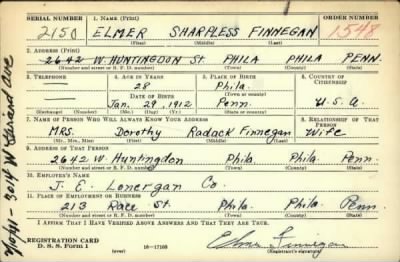 SERIAL NUMBER 1. NAME (Print) ORDER NUMBER
2150 ELMER SHARPLESS FINNEGAN 1548
(First) (Middle) (Last)
2. ADDRESS (Print)
2642 W. HUNTINGDON St. PHILA PHILA PENN.
(Number and street or R. F. D. number) (Town) (County) (State)
3. TELEPHONE 4. AGE IN YEARS 5. PLACE OF BIRTH 6. COUNTRY OF CITIZENSHIP
28 Phila.
DATE OF BIRTH
Jan. 29, 1912 Penn. U.S.A.
(Exchange) (Number) (Mo.) (Day) (Yr.) (State or country)
7. NAME OF PERSON WHO WILL ALWAYS KNOW YOUR ADDRESS 8. RELATIONSHIP OF THAT PERSON
MRS. Dorothy Radack Finnegan Wife
(Mr., Mrs., Miss) (First) (Middle) (Last)
9. ADDRESS OF THAT PERSON
2642 W. Huntingdon Phila. Phila. Penn.
(Number and street or R. F. D. number) (Town) (County) (State)
10. EMPLOYER'S NAME
J. E. Lonergan Co.
11. PLACE OF EMPLOYMENT OR BUSINESS
213 Race St. Phila. Phila. Penn.
(Number and street or R. F. D. number) (Town) (County) (State)
I AFFIRM THAT I HAVE VERIFIED ABOVE ANSWERS AND THAT THEY ARE TRUE.
REGISTRATION CARD
D. S. S. Form 1 (over) 16-17105 Elmer Finnegan
(Registrant's signature)
3014 W